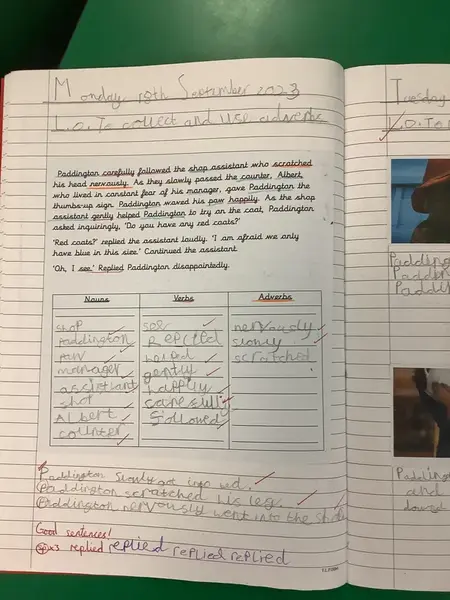 Monday, 18th September 2023
L.O. To collect and use adverbs
Paddington carefully followed the shop assistant who scratched
his head nervously. As they slowly passed the counter, Albert,
who lived in constant fear of his manager, gave Paddington the
thumbs-up sign. Paddington waved his paw happily. As the shop
assistant gently helped Paddington to try on the coat, Paddington
asked inquiringly, 'Do you have any red coats?'
'Red coats?' replied the assistant loudly. 'I am afraid we only
have blue in this size.' Continued the assistant.
'Oh, I see.' Replied Paddington disappointedly.
Nouns Verbs Adverbs
shop see nervously
Paddington Replied slowly
paw helped scratched
manager gently
assistant happily
shop carefully
Albert followed
counter
Paddington slowly got into
Paddington scratched his leg.
Paddington nervously went into the shop
Good sentences!
sp x3 replied replied replied replied
Tuesday
L.O. To
Padding
Paddin
Paddin
Padding
and